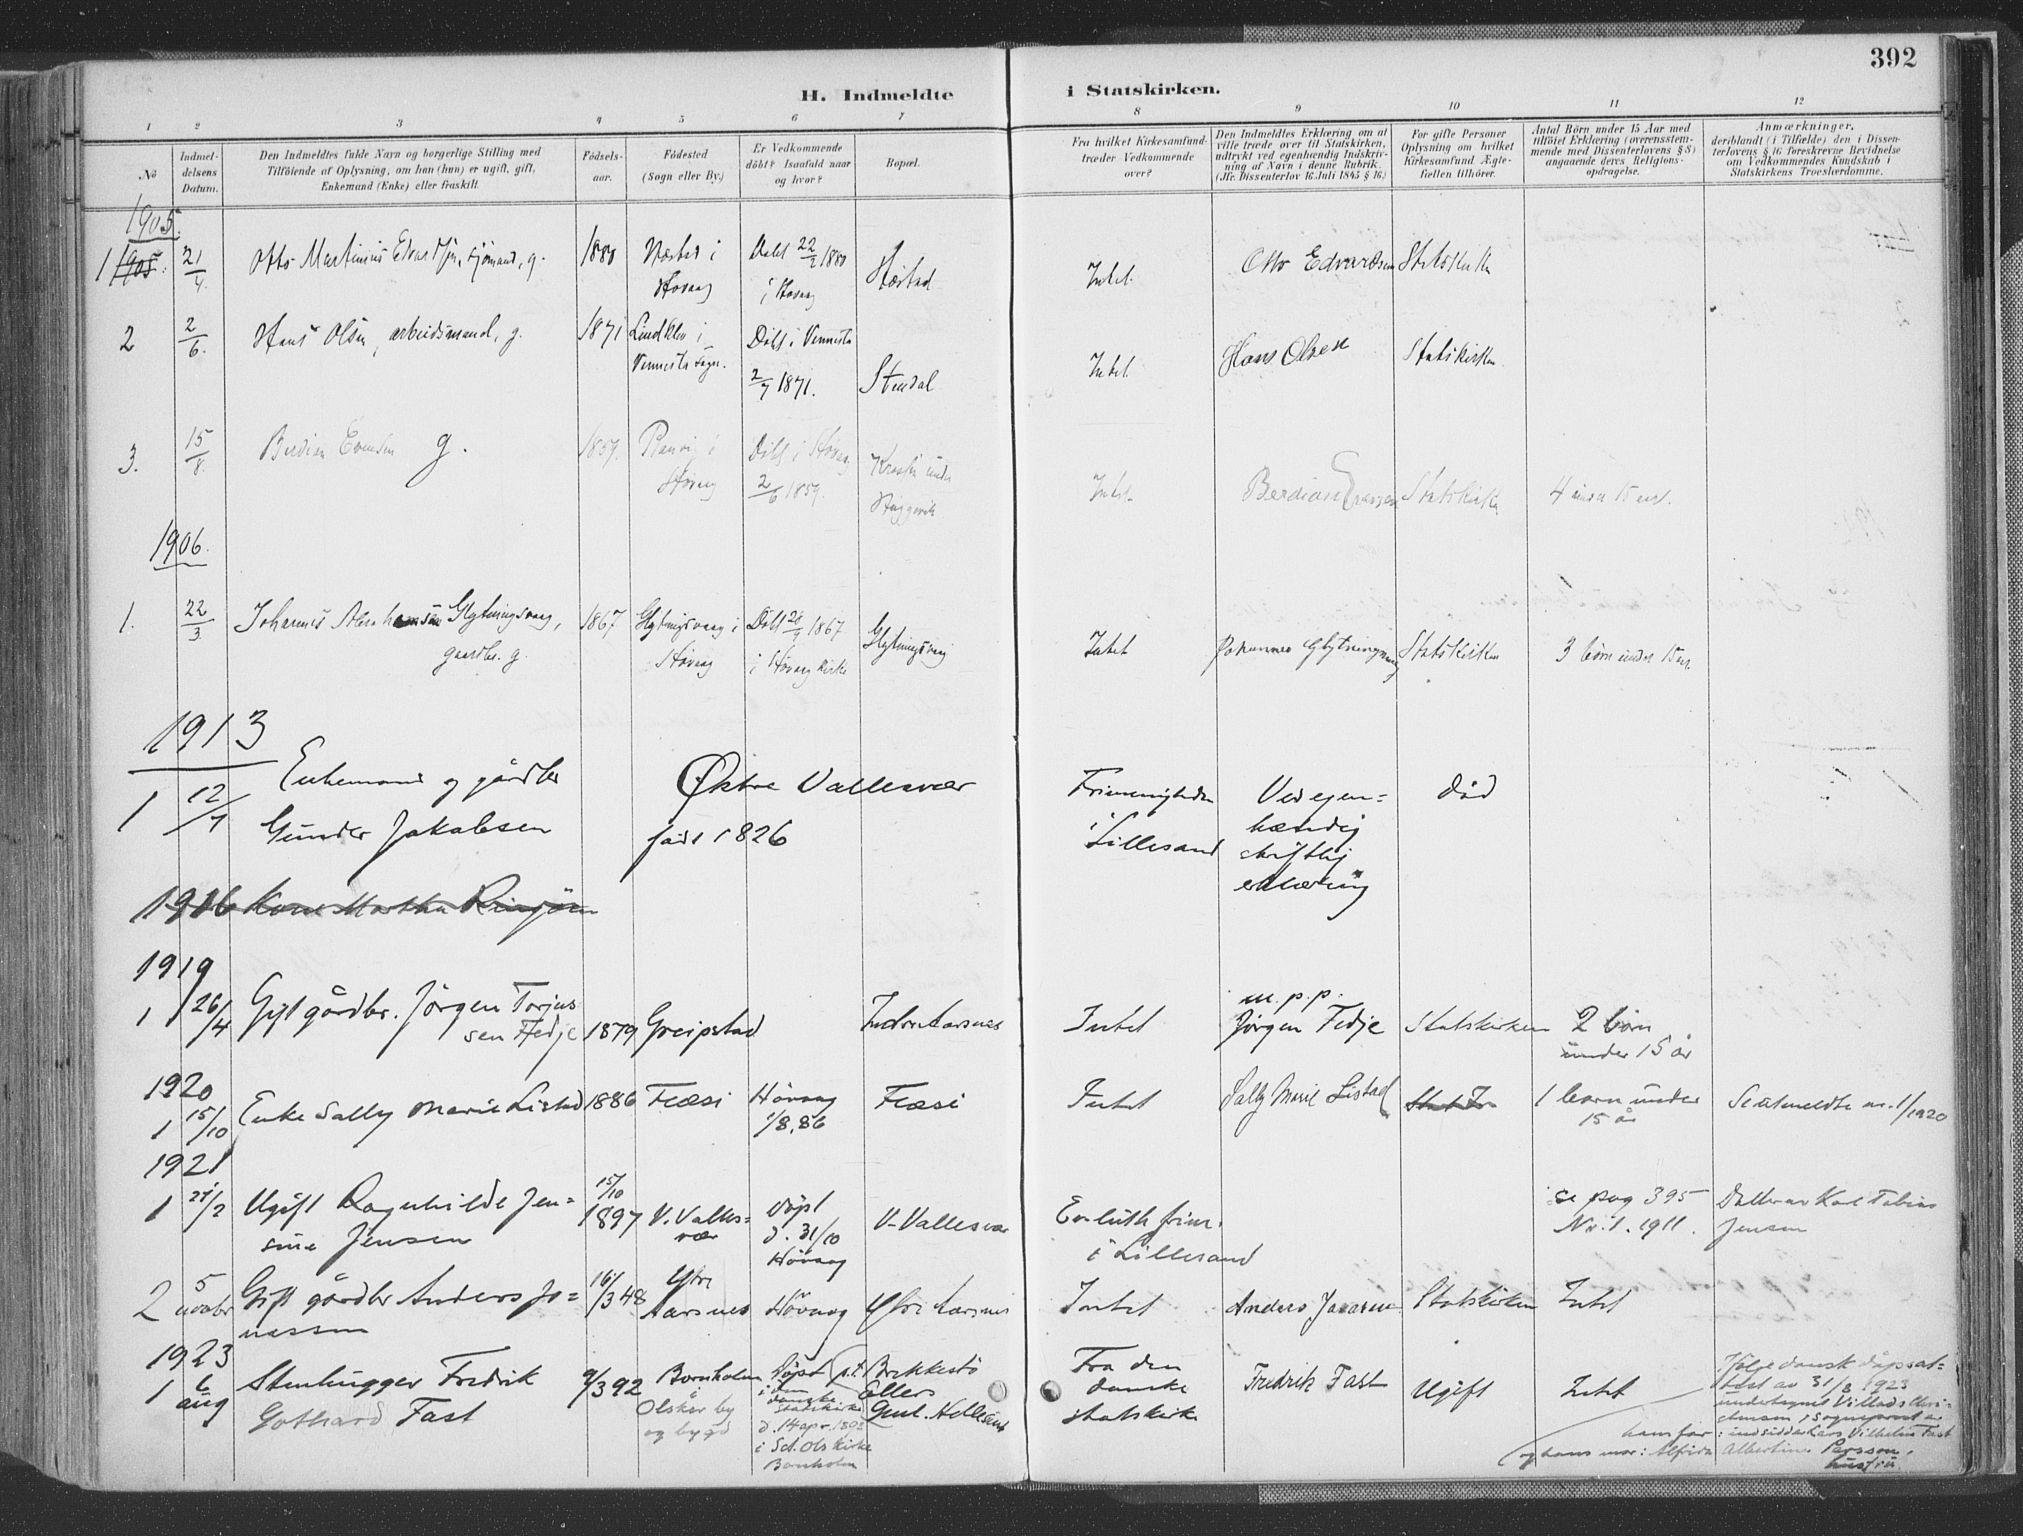 392
H. Indmeldte i Statskirken.
1 2 3 4 5 6 7 8 9 10 11 12
No
Indmel-
delsens
Datum.
Den Indmeldtes fulde Navn og borgerlige Stilling med
Tilföiende af Oplysning, om han (hun) er ugift, gift,
Enkemand (Enke) eller fraskilt.
Födsels-
aar.
Födested
(Sogn eller By.)
Er Vedkommende
döbt? Isaafald naar
og hvor?
Bopæl.
Fra hvilket Kirkesamfund
træder Vedkommende
over?
Den Indmeldtes Erklæring om at
ville træde over til Statskirken,
udtrykt ved egenhændig Indskriv-
ning af Navn i denne Rubrik.
(Jfr. Dissenterlov 16. Juli 1845 § 16.)
For gifte Personer
Oplysning om hvilket
Kirkesamfund Ægte-
fællen tilhörer.
Antal Börn under 15 Aar med
tilföiet Erklæring (overensstem-
mende med Dissenterlovens § 8)
angaaende deres Religions-
opdragelse.
Anmærkninger,
deriblandt (i Tilfælde) den i Dissen-
terlovens § 16 foreskrevne Bevidnelse
om Vedkommendes Kundskab i
Statskirkens Troeslærdomme.
1905.
1 1905. 21/4. Otto Martinius Edvardsen, sjömand, g. 1880 i Høvaag Døbt 22/2 1880 i Høvaag Intet. Otto Edvardsen Statskirken
2 2/6. Hans Olsen, arbeidsmand, g. 1871 i Vennesla sogn. Døbt i Vennesla 2/7 1871. Stendal Intet. Hans Olsen Statskirken
3. 15/8. Berdian Evensen g. 1859. i Høvag Døbt i Høvag 2/6 1859. Intet. Berdian Statskirken 4 under 15 aar.
1906.
1. 22/3 Johannes Abrahamsen Glytningsvaag,
gaardbr. g. 1867 Glytningsvaag i Høvag Døbt 1867 i Høvaag Kirke Glytningsvaag Intet Johannes Glytningsvaag Statskirken 3 børn under 15 aar
1913
1 12/7 Enkemand og gårdbr
Gunder Jakobsen
Østre Vallesvær
født 1826
Frimenigheden
i Lillesand
Ved egen=
hændig
skriftlig
erklæring
død
1916 Kone Martha
1919
1 26/4 Gift gårdbr. Jörgen Torjus
sen Fedje 1879 Greipstad Indre Aarsnes Intet
m. p. p.
Jörgen Fedje Statskirken 2 børn
under 15 år
1920
1 15/10 Enke Sally Marie Listad 1886 Flæsi Høvaag
1/8.86 Flæsi Intet Sally Marie Listad 1 barn under
15 år Se utmeldte nr. 1/1920
1921
1 21/2 Ugift Ragnhilde Jen=
sine Jensen 15/10
1897 V. Valles=
vær døpt
d. 31/10
Høvaag V. Vallesvær Ev. luth. frim.
i Lillesand se pag 395
Nr. 1. 1911. Datter av Karl Tobias
Jensen
2 5
novbr Gift gårdbr Anders Jo=
nassen 16/3 48 Ytre
Aarsnes Høvaag Ytre Aarsnes Intet Anders Statskirken Intet
1923
1 6
aug Stenhugger Fredrik
Gothard Fast 9/3 92 Bornholm
Olsker by
og bygd Døpt
i den
danske
statskirke
d. 14 apr. 1892
i Sct. Ols kirke
Bornholm p.t. Brekkestö
Eller
Fra den
danske
statskirke Fredrik Fast Ugift Intet
Ifølge dansk dåpsat=
test av 31/8 1923
undertegnet Villads Chri=
stensen, Sogneprest er
hans far: indsidder Lars Vilhelm Fast
og hans mor: Alfrida Albertine Persson,
hustru.